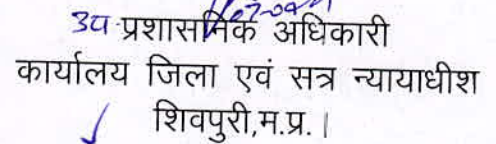 उप प्रशासनिक अधिकारी
कार्यालय जिला एवं सत्र न्यायाधीश
शिवपुरी,म.प्र.।